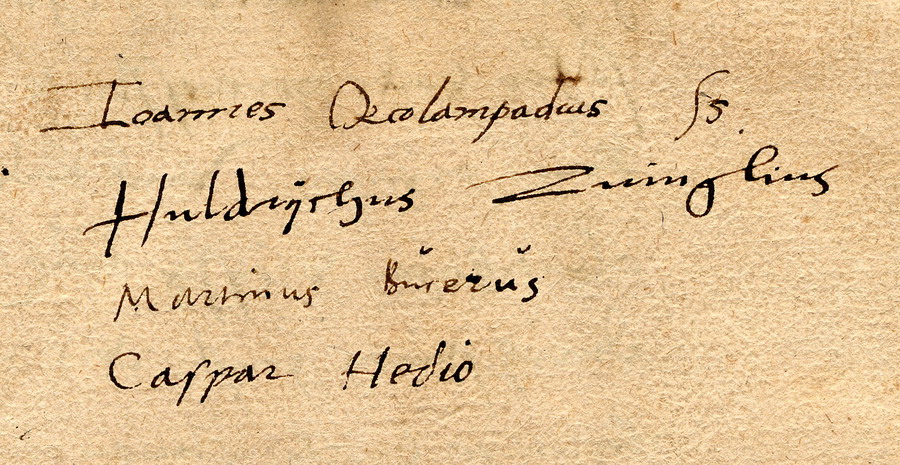 Ioannes Oecolampadius ſs.
Huldrijchus Zuinglius
Martinus Bŭcerŭs
Caſpar Hedio